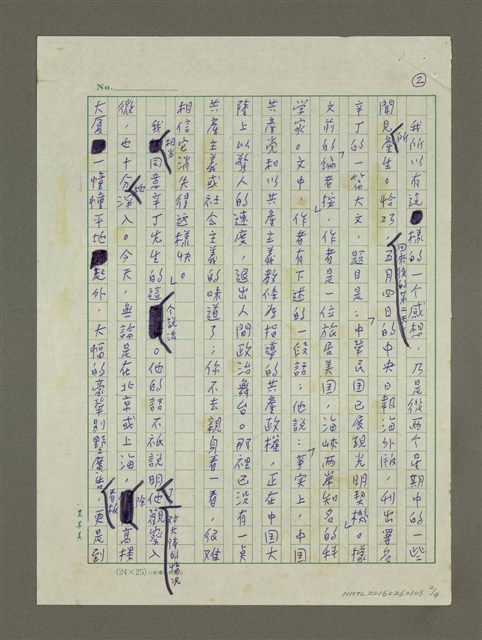 No.
②
我所以有這樣的一個感想，乃是從兩個星期中的一些
聞見所產生。恰巧，回來後的第二天，五月四日的中央日報海外版，刊出署名
辛丁的一篇大文，題目是：「中華民國已展現光明契機。」據
文前的「編者按」，作者是一位旅居美國，海峽兩岸知名的科
學家。文中，作者有下述的一段話：他說：「事實上，中國
共產党和以共產主義教條為指導的共產政權，正在中國大
陸上以驚人的速度，退出人間政治舞台。那裡已沒有一点
共產主義或社會主義的味道了；你不去親身看一看，很难
相信它消失得这樣快。」
我相当同意辛丁先生的這个說法。他的話不祇說明他对大陸的情况觀察入
微，也十分地深入。今天，無論是在北京或上海，除高楼
大厦一幢幢平地起外，大幅的豪華別墅廣告看板，更是到
(24×25)
NMTL20160260103 2/4